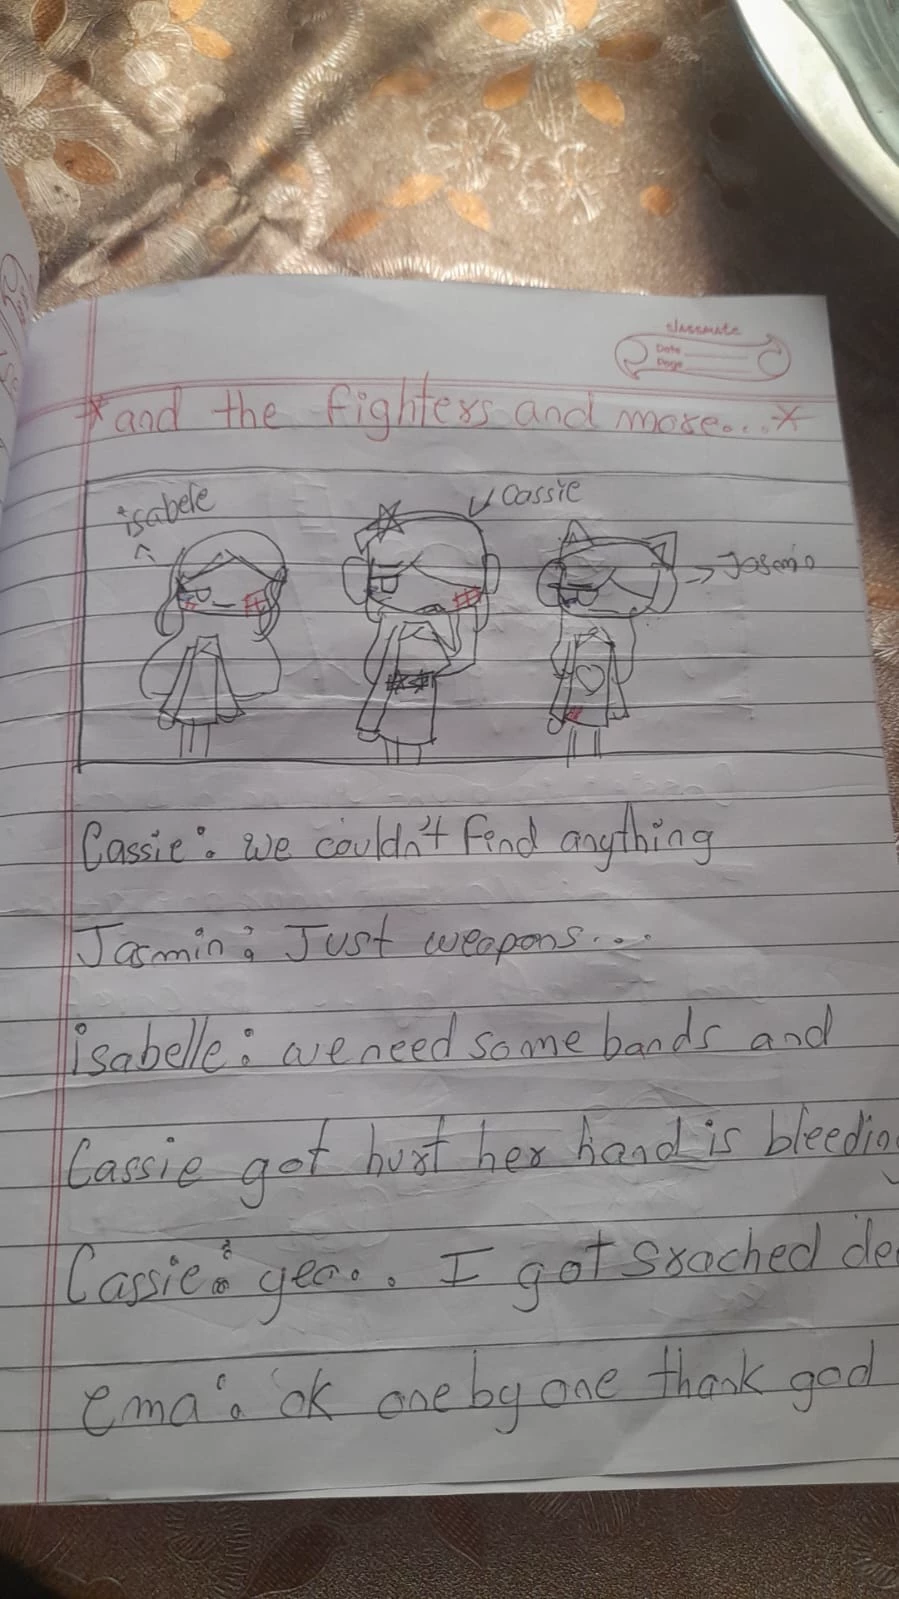 classmate
Date
Page
*and the fighters and more...*
isabele
Cassie
Jasmin
Cassie: we couldn't find anything
Jasmin: Just weapons...
isabelle: we need some bands and
Cassie got hurt her hand is bleeding
Cassie: yea.. I got srached de
ema: ok one by one thank god